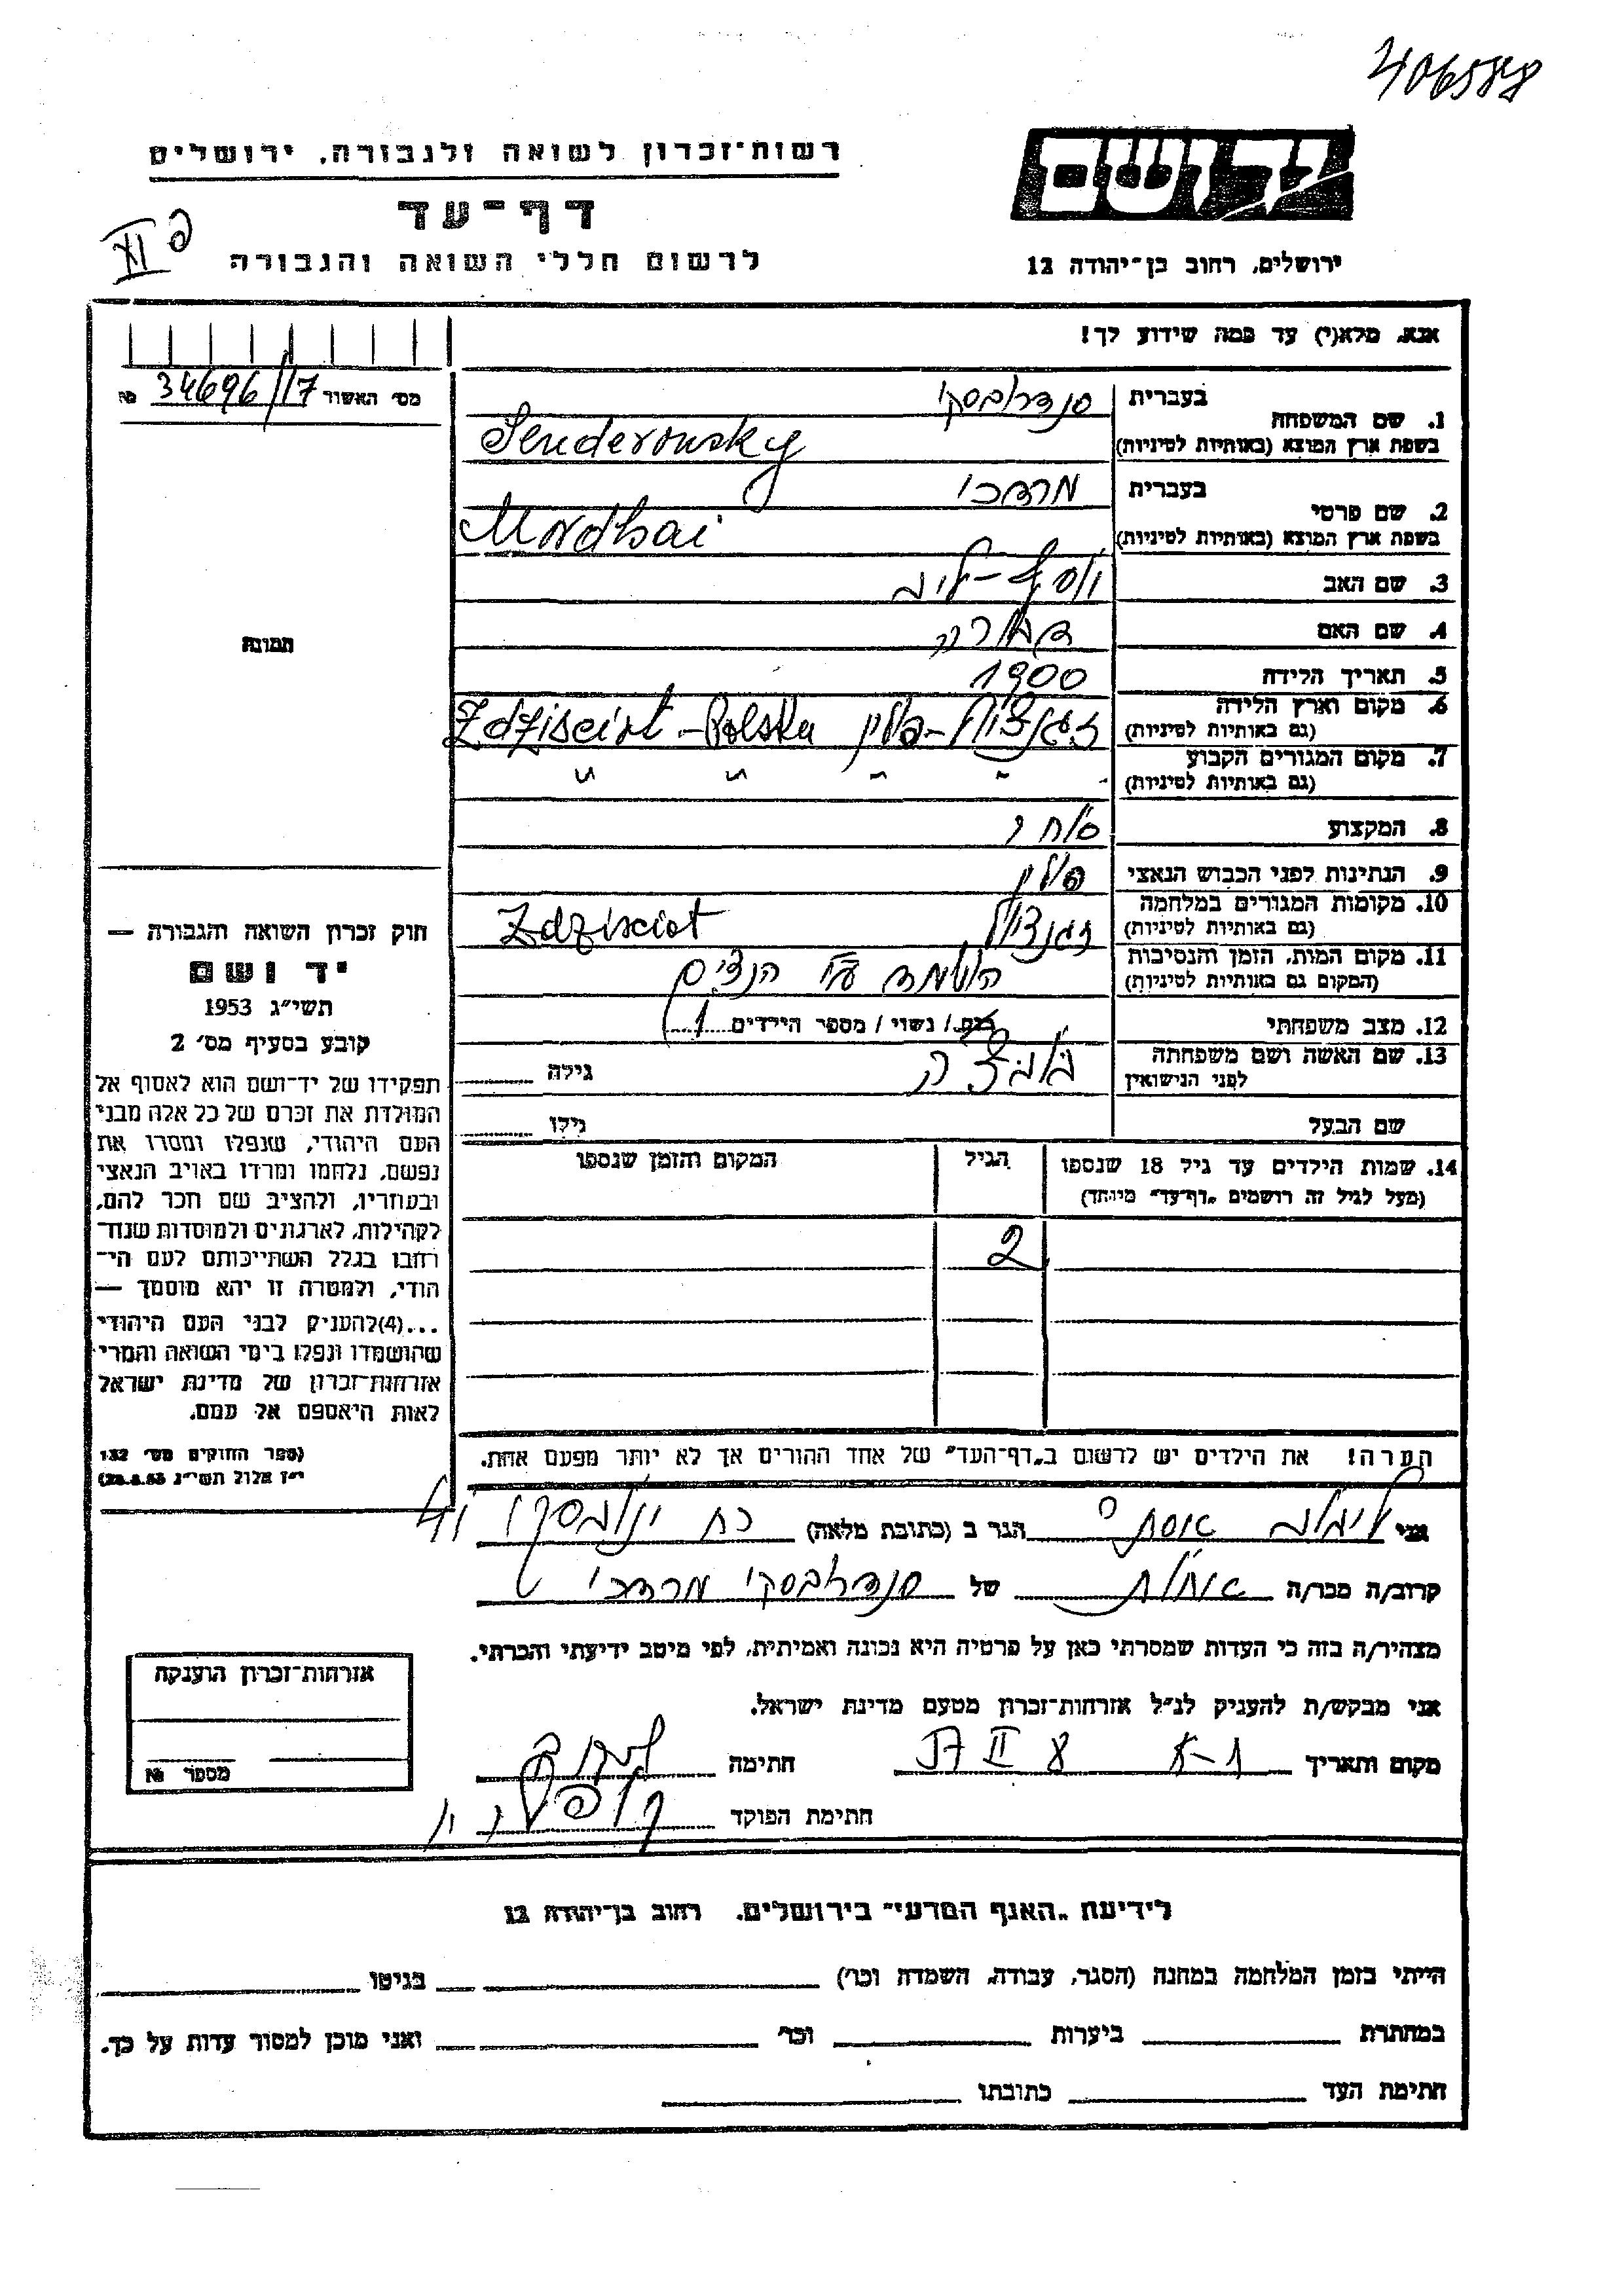 406588
רשות-זכרון לשואה ולגבורה, ירושלים
יד ושם
דף-עד
XI פ
לרשום חללי השואה והגבורה
ירושלים, רחוב בן-יהודה 12
אנא, מלא(י) עד כמה שידוע לך!
מס׳ האשור 34696/17 №
1. שם המשפחה
בעברית סנדרובסקי
בשפת ארץ המוצא (באותיות לטיניות) Senderowsky
2. שם פרטי
בעברית מרדכי
בשפת ארץ המוצא (באותיות לטיניות) Mordhai
3. שם האב יוסף-ליב
4. שם האם דבורה
5. תאריך הלידה 1900
6. מקום וארץ הלידה
(גם באותיות לטיניות) פולין Zdzisciol - Polska
7. מקום המגורים הקבוע
(גם באותיות לטיניות) " " " "
8. המקצוע סוחר
9. הנתינות לפני הכבוש הנאצי פולין
10. מקומות המגורים במלחמה
(גם באותיות לטיניות) Zdzisciol
11. מקום המות, הזמן והנסיבות
(המקום גם באותיות לטיניות) הושמד ע״י הנצים
12. מצב משפחתי רוק / נשוי / מספר הילדים 1
13. שם האשה ושם משפחתה
לפני הנישואין גילה
שם הבעל גילו
14. שמות הילדים עד גיל 18 שנספו
(מעל לגיל זה רושמים „דף-עד״ מיוחד)
הגיל
המקום והזמן שנספו
2
הערה! את הילדים יש לרשום ב„דף-העד״ של אחד ההורים אך לא יותר מפעם אחת.
תמונה
חוק זכרון השואה והגבורה —
יד ושם
תשי״ג 1953
קובע בסעיף מס׳ 2
תפקידו של יד-ושם הוא לאסוף אל
המולדת את זכרם של כל אלה מבני
העם היהודי, שנפלו ומסרו את
נפשם, נלחמו ומרדו באויב הנאצי
ובעוזריו, ולהציב שם וזכר להם,
לקהילות, לארגונים ולמוסדות שנח־
רבו בגלל השתייכותם לעם הי־
הודי, ולמטרה זו יהא מוסמך —
...(4)להעניק לבני העם היהודי
שהושמדו ונפלו בימי השואה והמרי
אזרחות-זכרון של מדינת ישראל
לאות היאספם אל עמם.
(ספר החוקים מס׳ 132
י״ז אלול תשי״ג 28.8.53)
אני אסתר הגר ב (כתובת מלאה)
קרוב/ה מכר/ה אחות של סנדרובסקי מרדכי
מצהיר/ה בזה כי העדות שמסרתי כאן על פרטיה היא נכונה ואמיתית, לפי מיטב ידיעתי והכרתי.
אני מבקש/ת להעניק לנ״ל אזרחות-זכרון מטעם מדינת ישראל.
מקום ותאריך חתימה
חתימת הפוקד
אזרחות-זכרון הוענקה
מספר №
לידיעת „האגף המדעי״ בירושלים, רחוב בן-יהודה 12
הייתי בזמן המלחמה במחנה (הסגר, עבודה, השמדה וכו׳) בגיטו
במחתרת ביערות וכו׳ ואני מוכן למסור עדות על כך.
חתימת העד כתובתו